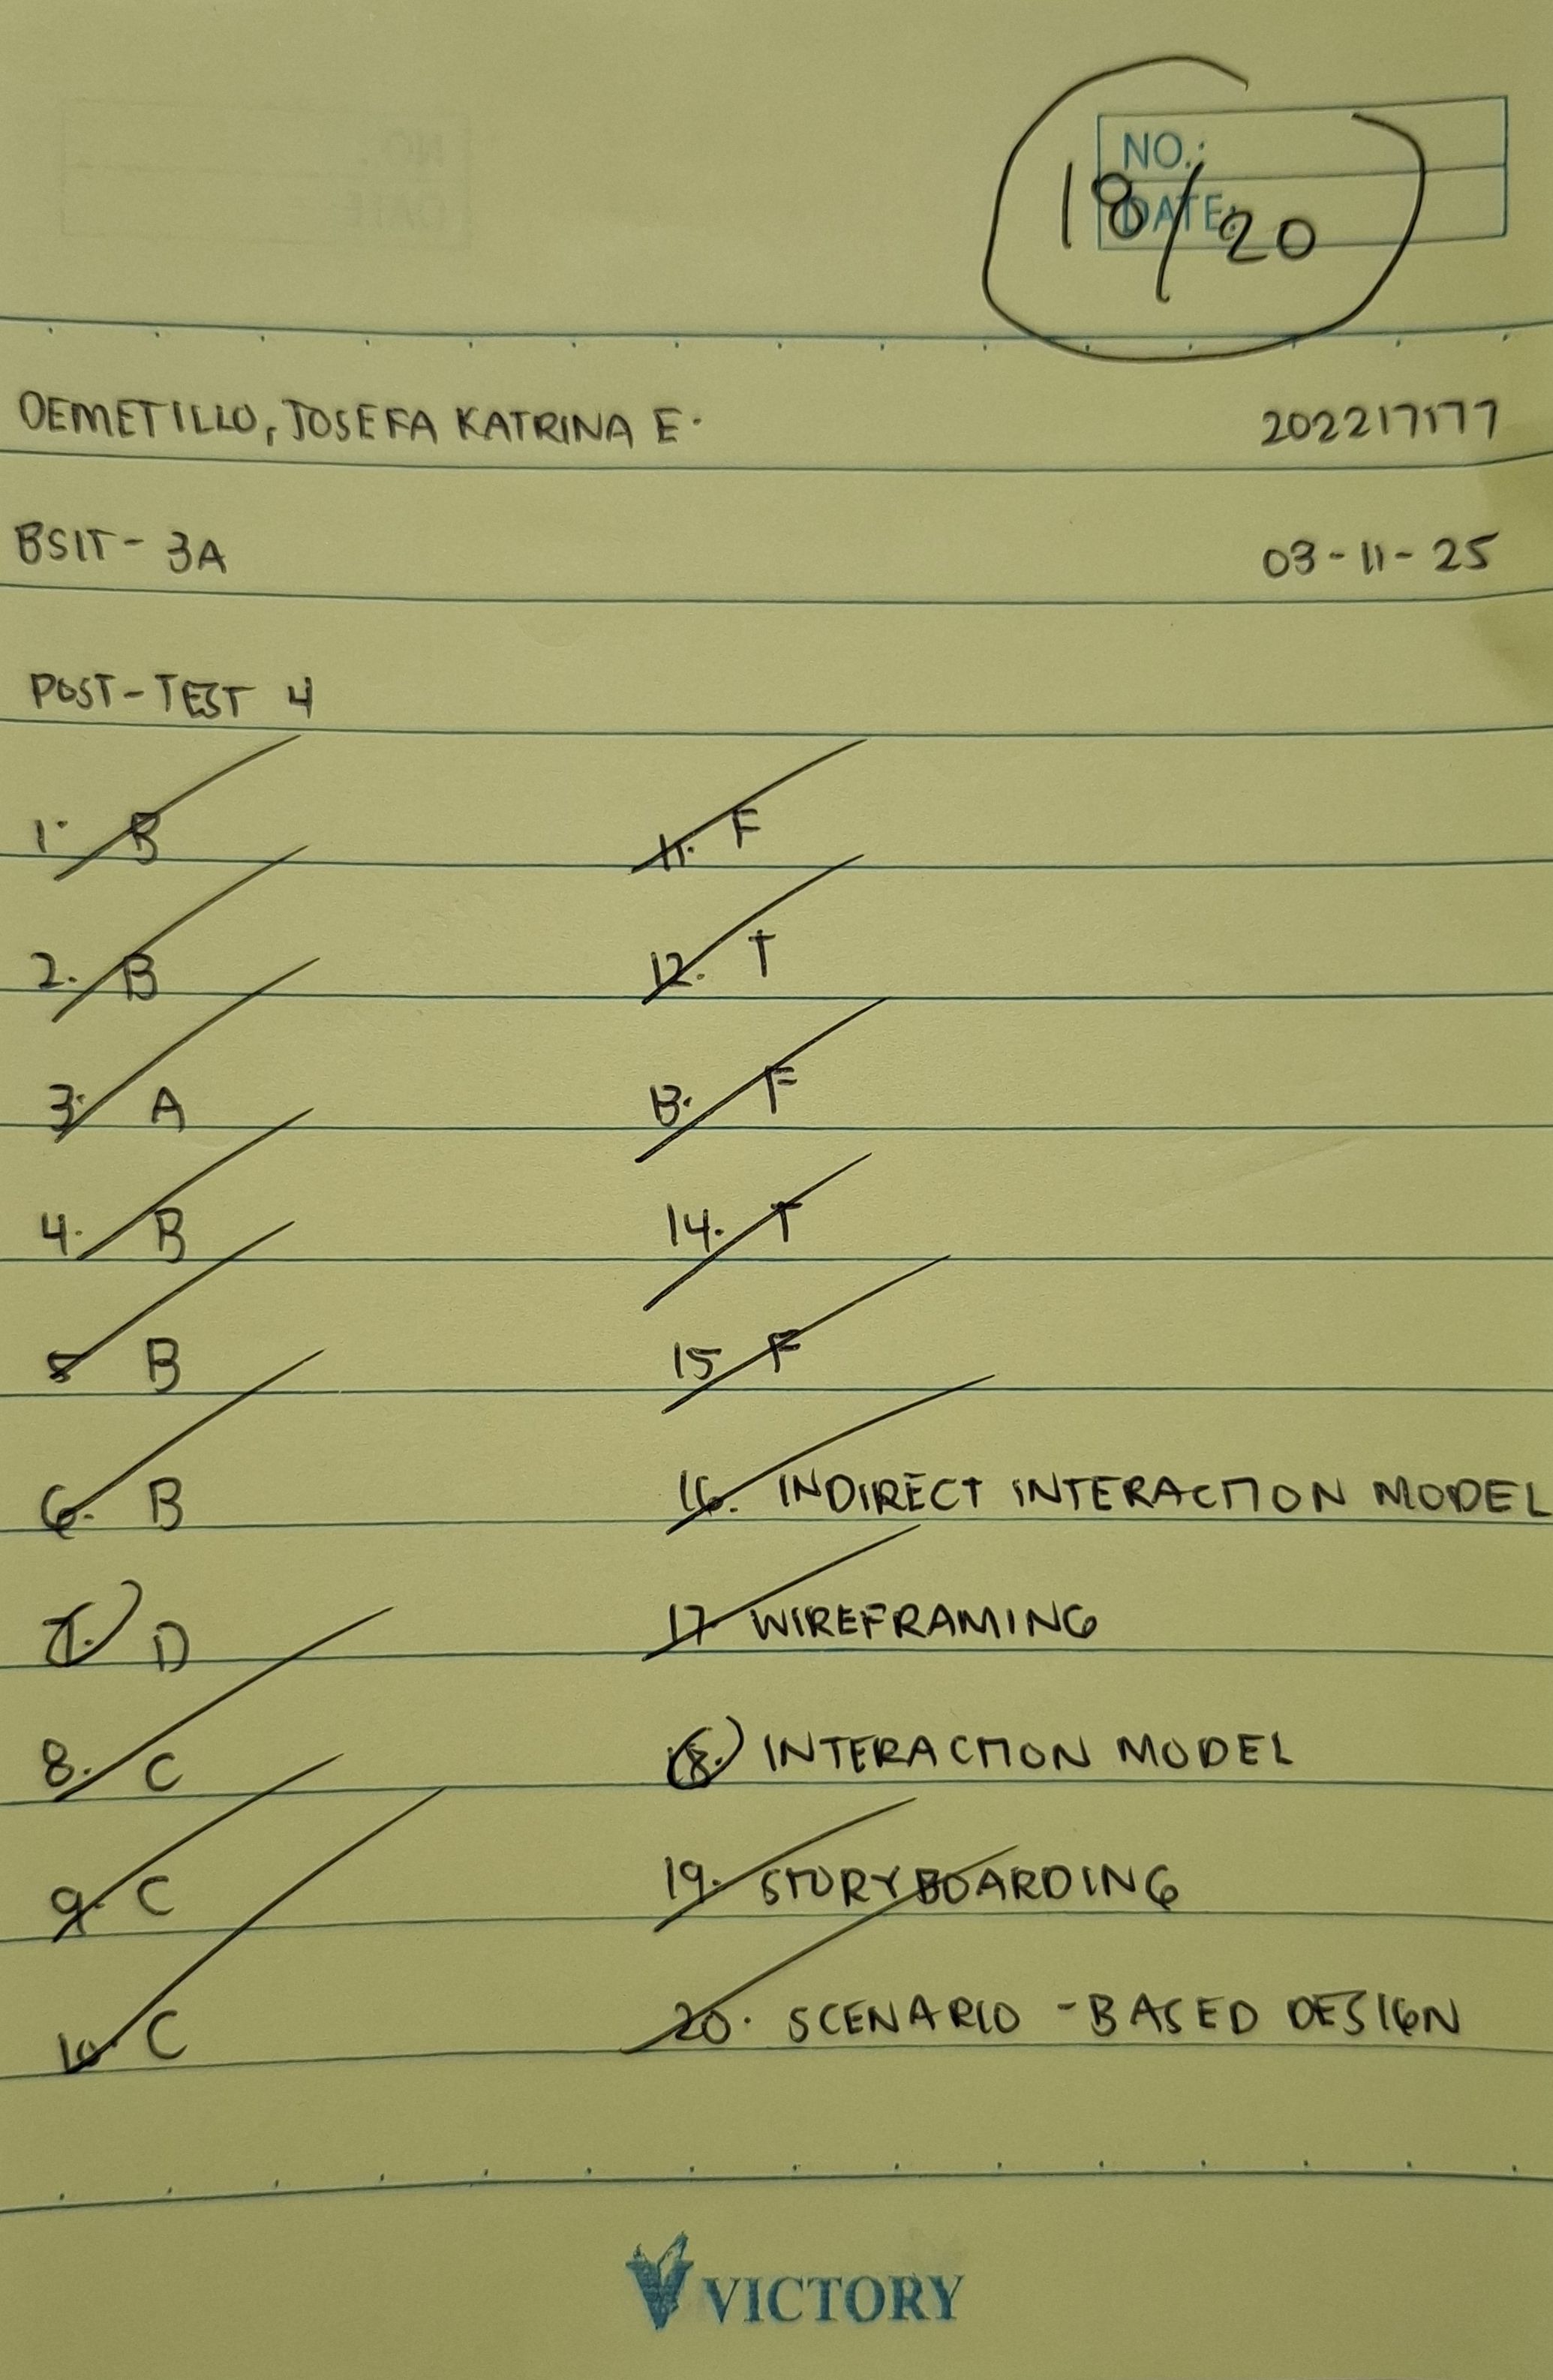 NO.:
DATE:
18/20
DEMETILLO, JOSEFA KATRINA E.
202217177
BSIT - 3A
03-11-25
POST-TEST 4
1. B
2. B
3. A
4. B
5 B
6. B
7. D
8. C
9. C
10. C
11. F
12. T
13. F
14. T
15 F
16. INDIRECT INTERACTION MODEL
17. WIREFRAMING
18. INTERACTION MODEL
19. STORYBOARDING
20. SCENARIO - BASED DESIGN
VICTORY